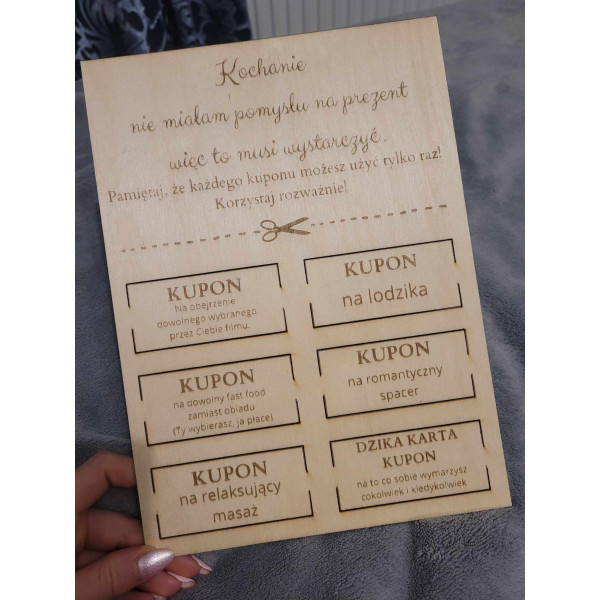 Kochanie
nie miałam pomysłu na prezent
więc to musi wystarczyć.
Pamiętaj, że każdego kuponu możesz użyć tylko raz!
Korzystaj rozważnie!
KUPON
Na obejrzenie
dowolnego wybranego
przez Ciebie filmu.
KUPON
na lodzika
KUPON
na dowolny fast food
zamiast obiadu
(Ty wybierasz, ja płacę)
KUPON
na romantyczny
spacer
KUPON
na relaksujący
masaż
DZIKA KARTA
KUPON
na to co sobie wymarzysz
cokolwiek i kiedykolwiek